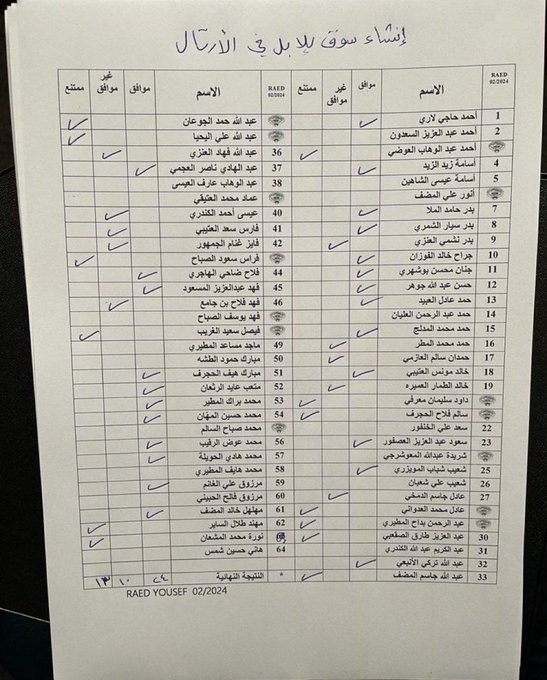 إنشاء سوق للإبل في الأرتال
RAED 02/2024 الاسم موافق غير موافق ممتنع
1 أحمد حاجي لاري
2 أحمد عبد العزيز السعدون
أحمد عبد الوهاب العوضي
4 أسامة زيد الزيد
5 أسامة عيسى الشاهين
أنور علي المضف
7 بدر حامد الملا
8 بدر سيار الشمري
9 بدر نشمي العنزي
10 جراح خالد الفوزان
11 جنان محسن بوشهري
12 حسن عبد الله جوهر
13 حمد عادل العبيد
14 حمد عبد الرحمن العليان
15 حمد محمد المدلج
16 حمد محمد المطر
17 حمدان سالم العازمي
18 خالد مونس العتيبي
19 خالد الطمار العميره
داود سليمان معرفي
سالم فلاح الحجرف
22 سعد علي الخنفور
23 سعود عبد العزيز العصفور
شريدة عبدالله المعوشرجي
25 شعيب شباب المويزري
26 شعيب علي شعبان
27 عادل جاسم الدمخي
عادل محمد العدواني
عبد الرحمن بداح المطيري
30 عبد العزيز طارق الصقعبي
31 عبد الكريم عبد الله الكندري
32 عبد الله تركي الأنبعي
33 عبد الله جاسم المضف
RAED 02/2024 الاسم موافق غير موافق ممتنع
عبد الله حمد الجوعان
عبد الله علي اليحيا
36 عبد الله فهاد العنزي
37 عبد الهادي ناصر العجمي
38 عبد الوهاب عارف العيسى
عماد محمد العتيقي
40 عيسى أحمد الكندري
41 فارس سعد العتيبي
42 فايز غنام الجمهور
فراس سعود الصباح
44 فلاح ضاحي الهاجري
45 فهد عبدالعزيز المسعود
46 فهد فلاح بن جامع
فهد يوسف الصباح
فيصل سعيد الغريب
49 ماجد مساعد المطيري
50 مبارك حمود الطشه
51 مبارك هيف الحجرف
52 متعب عايد الرثعان
53 محمد براك المطير
54 محمد حسين المهان
محمد صباح السالم
56 محمد عوض الرقيب
57 محمد هادي الحويلة
58 محمد هايف المطيري
59 مرزوق علي الغانم
60 مرزوق فالح الحبيني
61 مهلهل خالد المضف
62 مهند طلال الساير
نورة محمد المشعان
64 هاني حسين شمس
* النتيجة النهائية ٢٤ ١٠ ١٣
RAED YOUSEF 02/2024